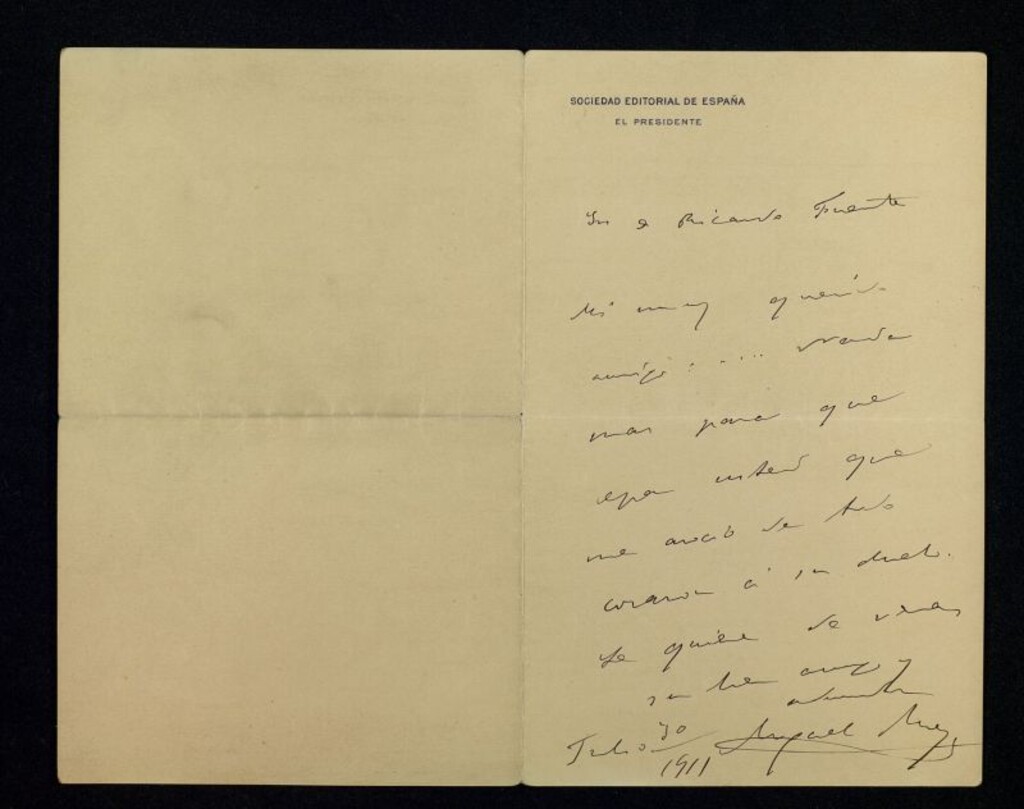 SOCIEDAD EDITORIAL DE ESPAÑA
EL PRESIDENTE
Sr D Ricardo Fuente
Mi muy querido
amigo: .... Nada
mas para que
sepa usted que
me asocio de todo
corazon á su duelo.
Le quiere de veras
su buen amigo y
Julio 30
1911 Miguel Moya